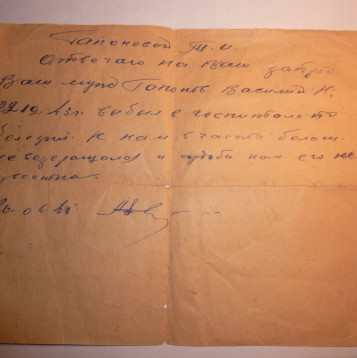 Гапоновой Т. И.
Отвечаю на Ваш запрос
Ваш муж Гапонов Василий Н.
выбыл в госпиталь по
болезни. К нам в часть больш
не возвращался и судьба нам его не
звестна.